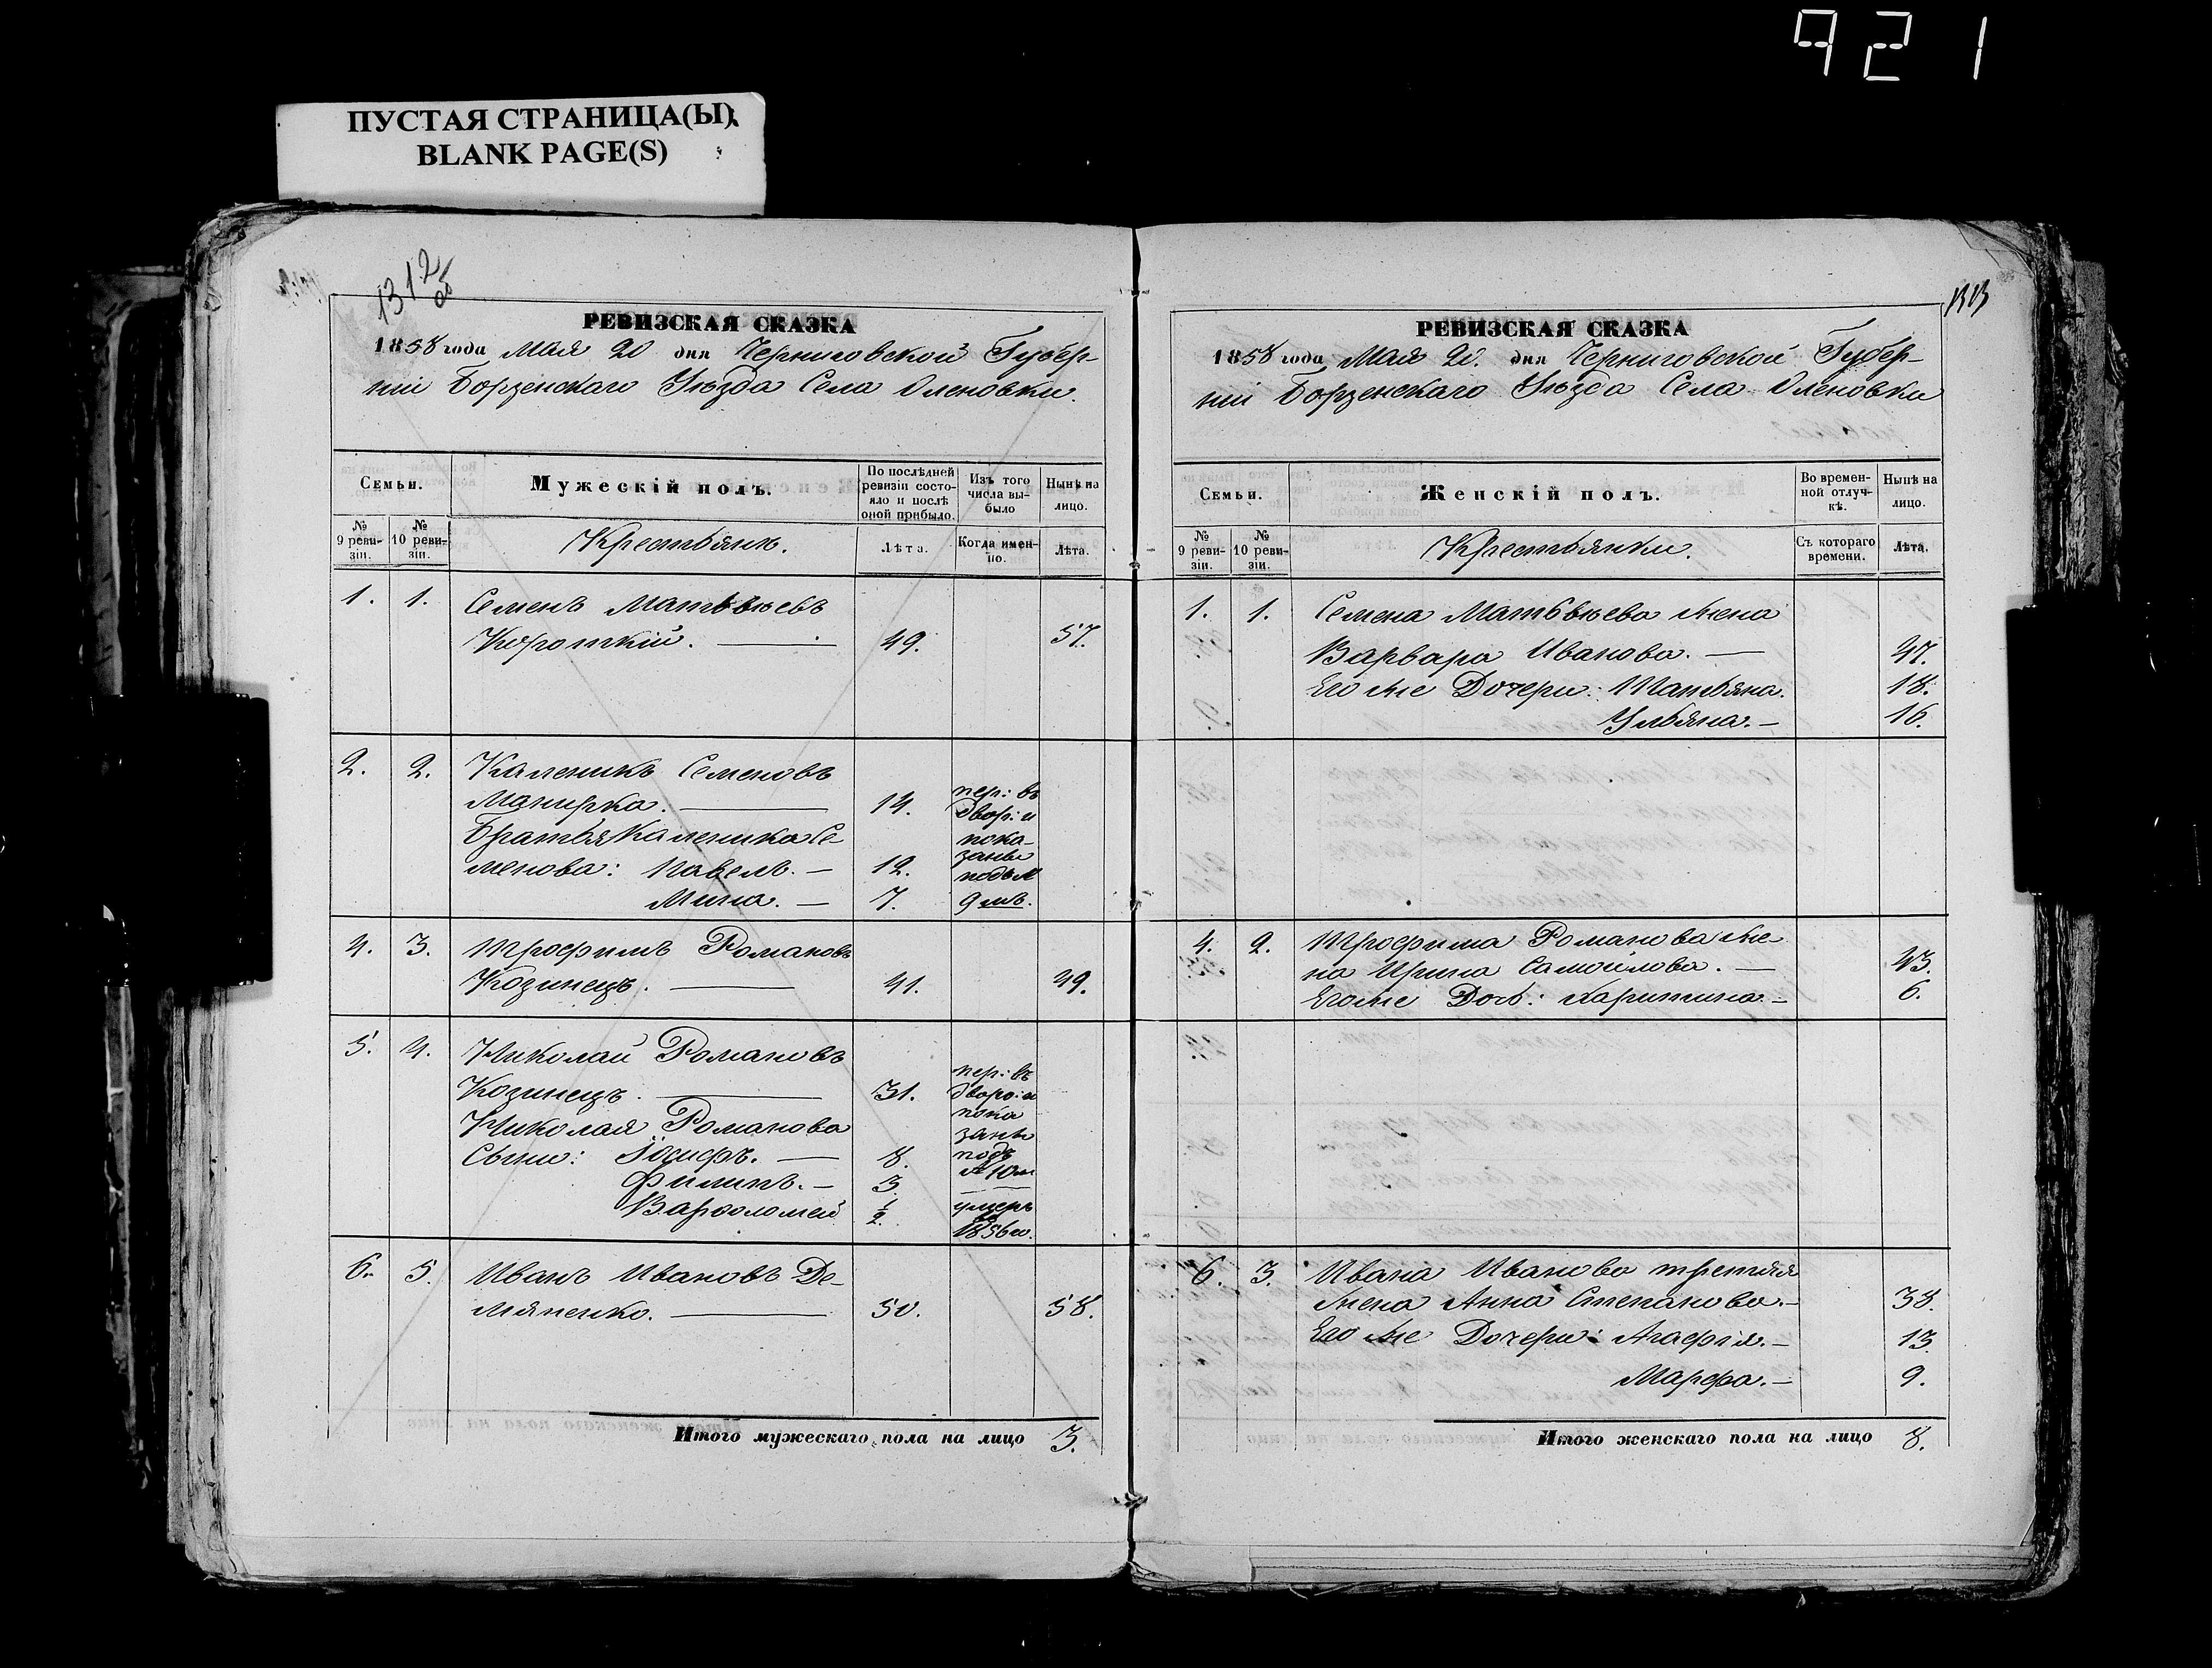 921
ПУСТАЯ СТРАНИЦА(Ы).
BLANK PAGE(S)
1312
об
РЕВИЗСКАЯ СКАЗКА
1858 года Мая 20 дня Черниговской Губер-
ніи Борзенскаго Уѣзда Села Оленовки.
Семьи.
Мужескій полъ.
По послѣдней ревизіи состояло и послѣ оной прибыло.
Изъ того числа выбыло
Нынѣ на лицо.
№ 9 ревизіи.
№ 10 ревизіи.
Крестьяне.
Лѣта.
Когда именно.
Лѣта.
1. 1. Семенъ Матвѣевъ
Короткій. — 49. 57.
2. 2. Каленикъ Семеновъ
— 14. пер: въ
двор: и
Братья Каленика Се- пока-
заны
менова: Павелъ. — 12. подъ №
Мина. — 7. 9 мъ.
4. 3. Трофимъ Романовъ
Козинецъ. — 41. 49.
5. 4. Николай Романовъ
Козинецъ. — 31. пер: въ
дворо: и
Николая Романова пока
заны
Сыны: Іосифъ. — 8. подъ
№ 10 м
Филипъ. — 3.
Варфоломей ½. умеръ
въ
1856 го.
6. 5. Иванъ Ивановъ Де-
мяненко. — 50. 58.
Итого мужескаго пола на лицо 3.
1313
РЕВИЗСКАЯ СКАЗКА
1858 года Мая 20. дня Черниговской Губер-
ніи Борзенскаго Уѣзда Села Оленовки
Семьи.
Женскій полъ.
Во временной отлучкѣ.
Нынѣ на лицо.
№ 9 ревизіи.
№ 10 ревизіи.
Крестьянки.
Съ котораго времени.
Лѣта.
1. 1. Семена Матвѣева жена
Варвара Иванова. — 47.
Его же Дочери: Татьяна. 18.
Ульяна. — 16.
4. 2. Трофима Романова же-
на Ирина Самойлова. — 43.
Его же Дочь: Харитина — 6.
6. 3. Ивана Иванова третяя
жена Анна Степанова. — 38.
Его же Дочери: Агафія. — 13.
Марфа. — 9.
Итого женскаго пола на лицо 8.